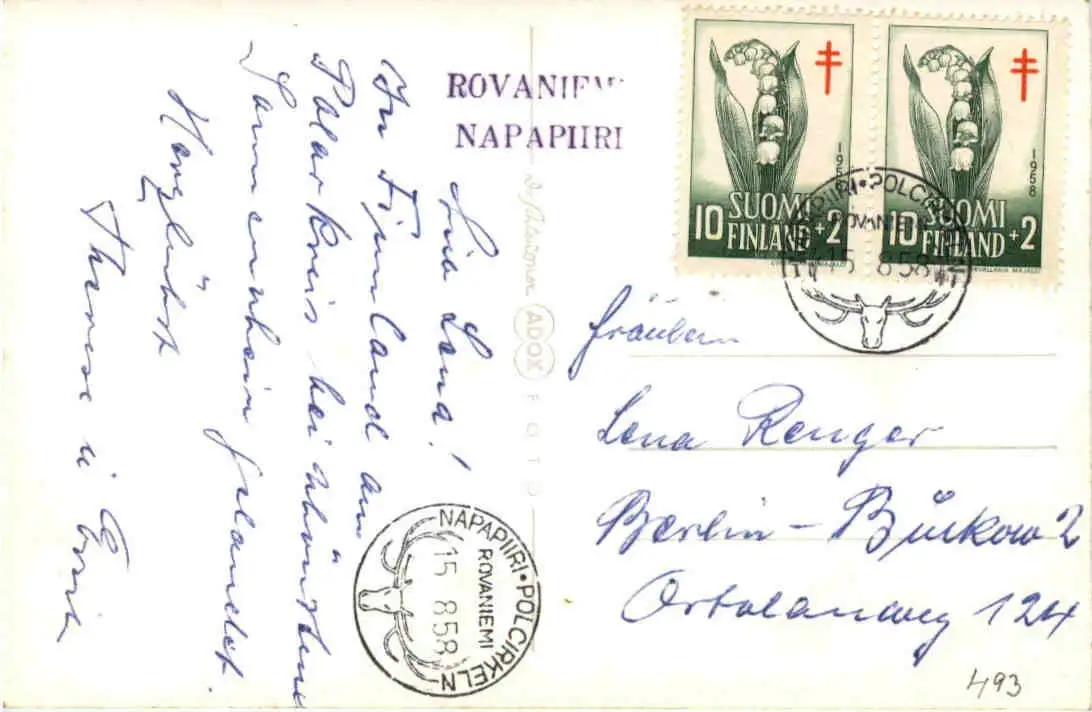 Liebe Lena!
In Finnland am
Polarkreis bei schönstem
Sonnenschein gelandet.
Herzlichst
u. Erich
ROVANIEMI
NAPAPIIRI
1958
10 SUOMI
FINLAND +2
1958
10 SUOMI
FINLAND +2
NAPAPIIRI·POLCIRKELN
ROVANIEMI
15 8.58
NAPAPIIRI·POLCIRKELN
ROVANIEMI
15 8.58
ADOX
FOTO
Fräulein
Lena Renger
Berlin-Buckow 2
Ortolanweg 124
493